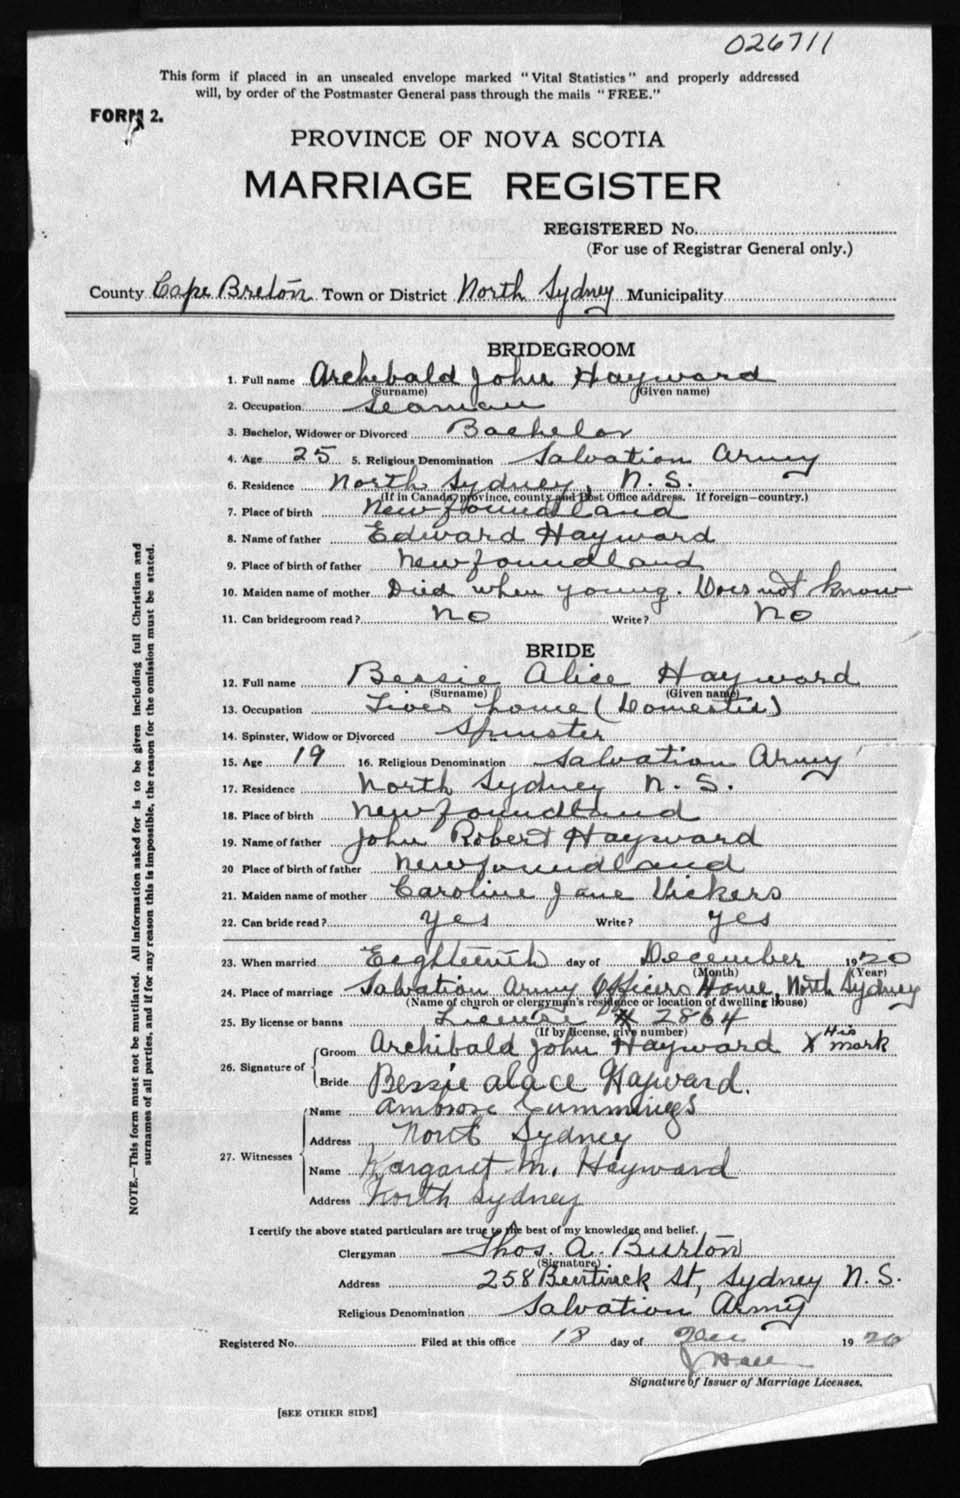 026711
This form if placed in an unsealed envelope marked "Vital Statistics" and properly addressed
will, by order of the Postmaster General pass through the mails "FREE."
FORM 2.
PROVINCE OF NOVA SCOTIA
MARRIAGE REGISTER
REGISTERED No.
(For use of Registrar General only.)
County Cape Breton Town or District North Sydney Municipality
BRIDEGROOM
1. Full name Archibald John Hayward
(Surname) (Given name)
2. Occupation Seaman
3. Bachelor, Widower or Divorced Bachelor
4. Age 25 5. Religious Denomination Salvation Army
6. Residence North Sydney, N. S.
(If in Canada, province, county and Post Office address. If foreign—country.)
7. Place of birth Newfoundland
8. Name of father Edward Hayward
9. Place of birth of father Newfoundland
10. Maiden name of mother Died when young. Does not know
11. Can bridegroom read? No Write? No
BRIDE
12. Full name Bessie Alice Hayward
(Surname) (Given name)
13. Occupation Lives home (Domestic)
14. Spinster, Widow or Divorced Spinster
15. Age 19 16. Religious Denomination Salvation Army
17. Residence North Sydney N. S.
18. Place of birth Newfoundland
19. Name of father John Robert Hayward
20 Place of birth of father Newfoundland
21. Maiden name of mother Caroline Jane Vickers
22. Can bride read? yes Write? yes
23. When married Eighteenth day of December 1920
(Month) (Year)
24. Place of marriage Salvation Army Officers Home, North Sydney
(Name of church or clergyman's residence or location of dwelling house)
25. By license or banns License # 2864
(If by license, give number)
26. Signature of Groom Archibald John Hayward X His mark
Bride Bessie alace Hayward.
27. Witnesses Name Ambrose Cummings
Address North Sydney
Name Margaret M. Hayward
Address North Sydney
I certify the above stated particulars are true to the best of my knowledge and belief.
Clergyman Thos. A. Burton
(Signature)
Address 258 Bentinck St, Sydney N. S.
Religious Denomination Salvation Army
Registered No. Filed at this office 18 day of 1920
Signature of Issuer of Marriage Licenses.
[SEE OTHER SIDE]
NOTE.—This form must not be mutilated. All information asked for is to be given including full Christian and
surnames of all parties, and if for any reason this is impossible, the reason for the omission must be stated.